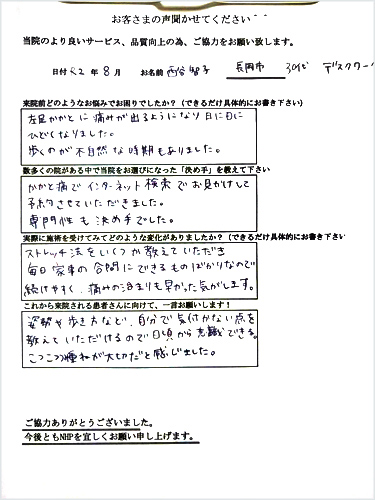 お客さまの声聞かせてください^^
当院のより良いサービス、品質向上の為、ご協力をお願い致します。
日付 R2 年 8 月 お名前 西谷 智子 長岡市 30代 デスクワーク
来院前どのようなお悩みでお困りでしたか？（できるだけ具体的にお書き下さい）
左足かかとに痛みが出るようになり日に日に
ひどくなりました。
歩くのが不自然な時期もありました。
数多くの院がある中で当院をお選びになった「決め手」を教えて下さい
かかと痛でインターネット検索でお見かけして
予約させていただきました。
専門性も決め手でした。
実際に施術を受けてみてどのような変化がありましたか？（できるだけ具体的にお書き下さい
ストレッチ法をいくつか教えていただき
毎日家事の合間にできるものばかりなので
続けやすく、痛みの治まりも早かった気がします。
これから来院される患者さんに向けて、一言お願いします！
姿勢や歩き方など、自分で気付かない点を
教えていただけるので日頃から意識できる。
こつこつ積重ねが大切だと感じました。
ご協力ありがとうございました。
今後ともNHPを宜しくお願い申し上げます。